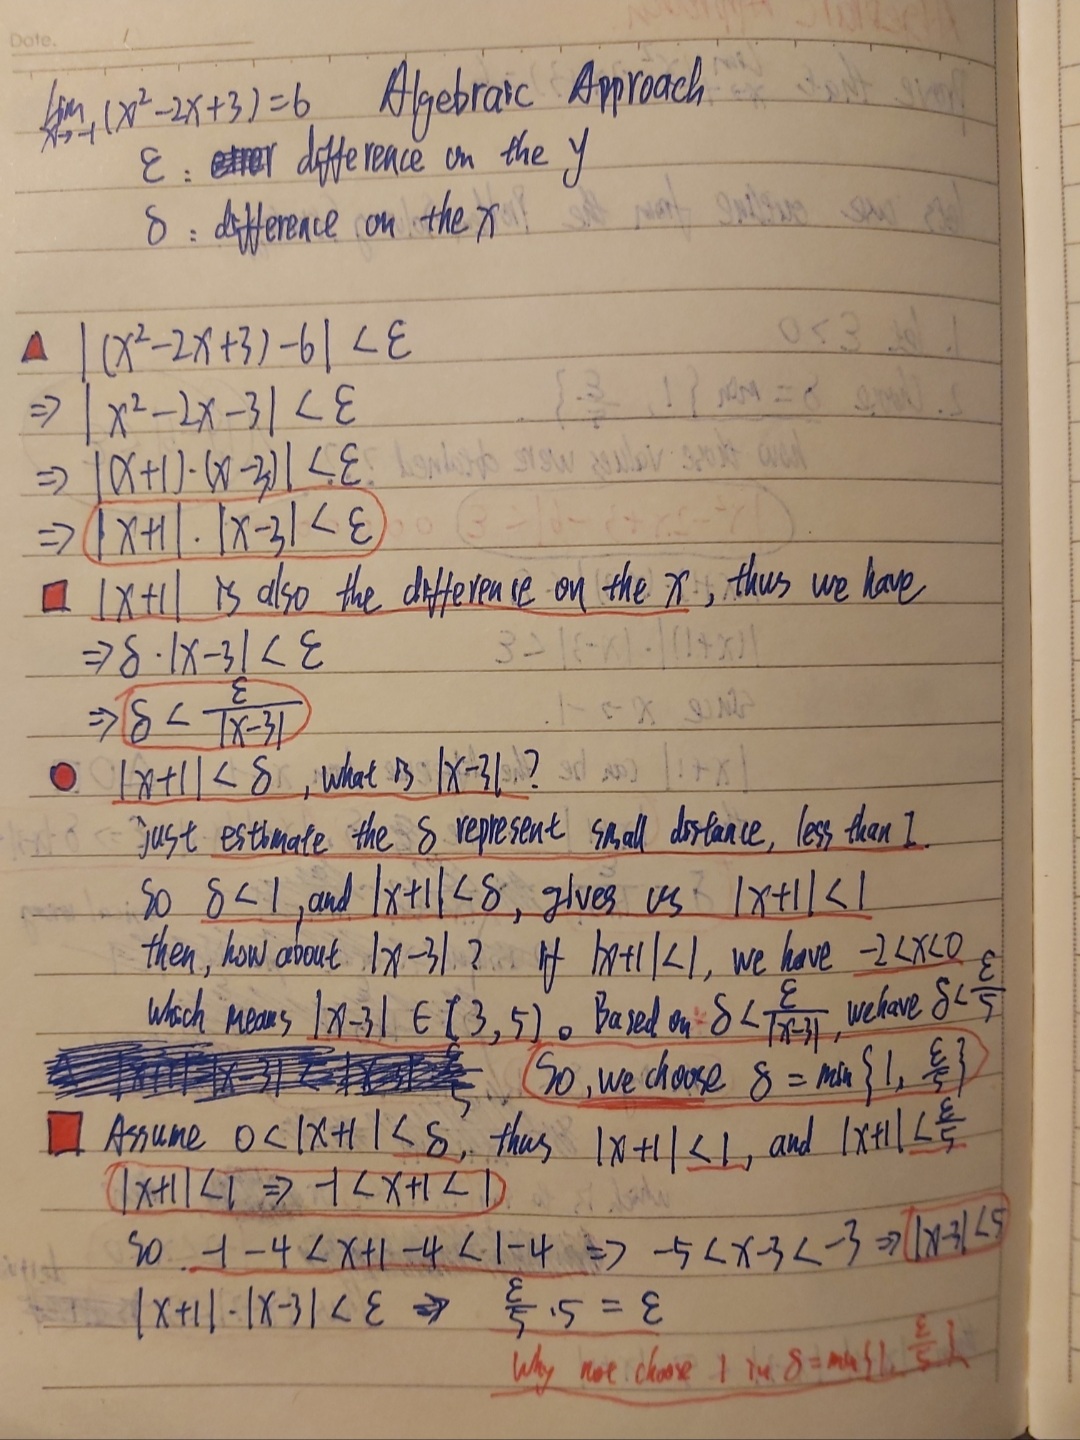 Date. /
lim x→-1 (x²-2x+3)=6 Algebraic Approach
ε : difference on the y
δ : difference on the x
|(x²-2x+3)-6| < ε
⇒ |x²-2x-3| < ε
⇒ |(x+1)·(x-3)| < ε
⇒ |x+1|·|x-3| < ε
|x+1| is also the difference on the x, thus we have
⇒ δ·|x-3| < ε
⇒ δ < ε/|x-3|
|x+1| < δ, what is |x-3|?
Just estimate the δ represent small distance, less than 1.
So δ<1, and |x+1|<δ, gives us |x+1|<1
then, how about |x-3|? If |x+1|<1, we have -2<x<0
which means |x-3| ∈ (3,5). Based on δ < ε/|x-3|, we have δ < ε/5
So, we choose δ = min{1, ε/5}
Assume 0<|x+1|<δ, thus |x+1|<1, and |x+1|<ε/5
|x+1|<1 ⇒ -1<x+1<1
So -1-4<x+1-4<1-4 ⇒ -5<x-3<-3 ⇒ |x-3|<5
|x+1|·|x-3|<ε ⇒ ε/5·5 = ε
Why not choose 1 in δ=min{1, ε/5}